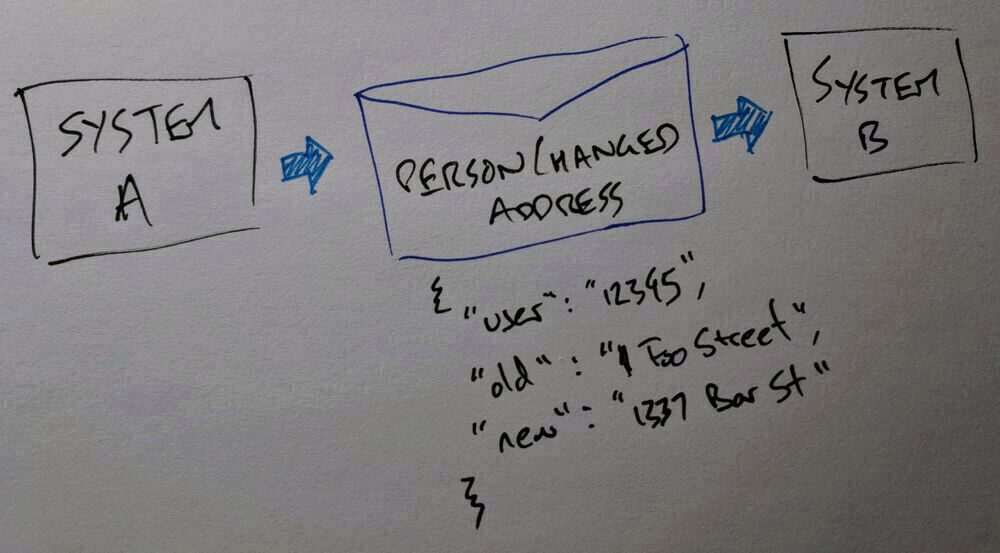 SYSTEM
A
PERSONCHANGED
ADDRESS
SYSTEM
B
{
"user": "12345",
"old": "1 Foo Street",
"new": "1337 Bar St"
}